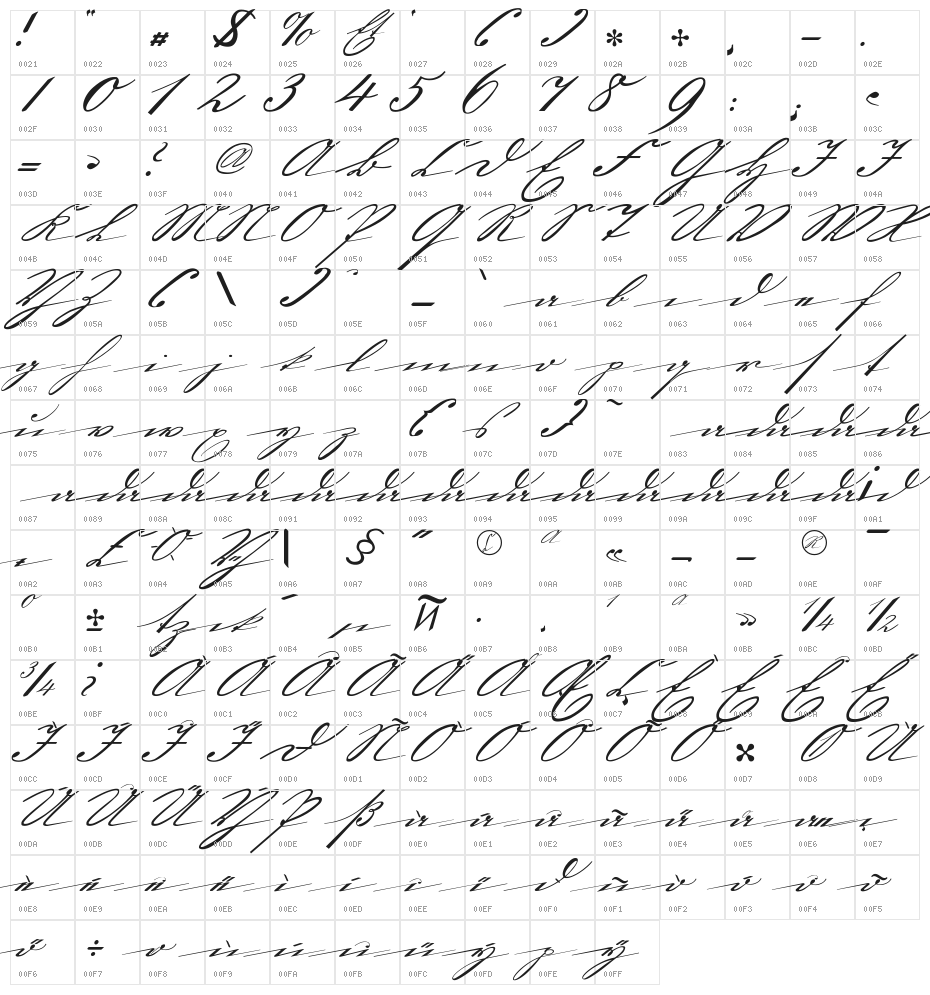 ! " # $ % & ' ( ) * + , - .
0021 0022 0023 0024 0025 0026 0027 0028 0029 002A 002B 002C 002D 002E
/ 0 1 2 3 4 5 6 7 8 9 : ;
002F 0030 0031 0032 0033 0034 0035 0036 0037 0038 0039 003A 003B 003C
= ? @ A B C D E F G H I J
003D 003E 003F 0040 0041 0042 0043 0044 0045 0046 0047 0048 0049 004A
K L M N O P Q R S T U V W X
004B 004C 004D 004E 004F 0050 0051 0052 0053 0054 0055 0056 0057 0058
Y Z [ \ ] ^ _ ` a b c d e f
0059 005A 005B 005C 005D 005E 005F 0060 0061 0062 0063 0064 0065 0066
g h i j k l m n o p q r s t
0067 0068 0069 006A 006B 006C 006D 006E 006F 0070 0071 0072 0073 0074
u v w x y z { } ~
0075 0076 0077 0078 0079 007A 007B 007C 007D 007E 0083 0084 0085 0086
0087 0089 008A 008C 0091 0092 0093 0094 0095 0099 009A 009C 009F 00A1
£ ¥ ¦ § ¨ © ª « ¬ - ® ¯
00A2 00A3 00A4 00A5 00A6 00A7 00A8 00A9 00AA 00AB 00AC 00AD 00AE 00AF
° ± ´ · ¹ » ¼ ½
00B0 00B1 00B2 00B3 00B4 00B5 00B6 00B7 00B8 00B9 00BA 00BB 00BC 00BD
¾ ¿ À Á Â Ã Ä Å Æ Ç È É Ê Ë
00BE 00BF 00C0 00C1 00C2 00C3 00C4 00C5 00C6 00C7 00C8 00C9 00CA 00CB
Ì Í Î Ï Ð Ñ Ò Ó Ô Õ Ö × Ø Ù
00CC 00CD 00CE 00CF 00D0 00D1 00D2 00D3 00D4 00D5 00D6 00D7 00D8 00D9
Ú Û Ü Ý Þ ß à á â ã ä å æ ç
00DA 00DB 00DC 00DD 00DE 00DF 00E0 00E1 00E2 00E3 00E4 00E5 00E6 00E7
è é ê ë ì í î ï ð ñ ò ó ô õ
00E8 00E9 00EA 00EB 00EC 00ED 00EE 00EF 00F0 00F1 00F2 00F3 00F4 00F5
ö ÷ ø ù ú û ü ý þ ÿ
00F6 00F7 00F8 00F9 00FA 00FB 00FC 00FD 00FE 00FF